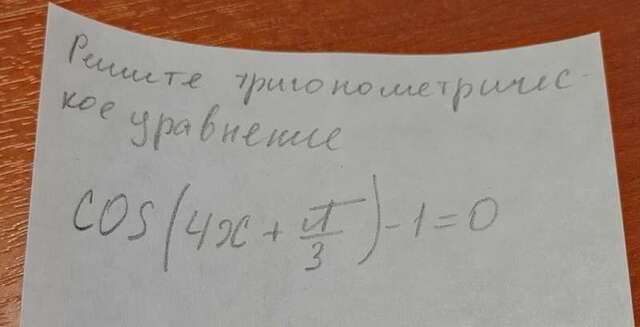 Решите тригонометричес-
кое уравнение
cos(4x + π/3) - 1 = 0